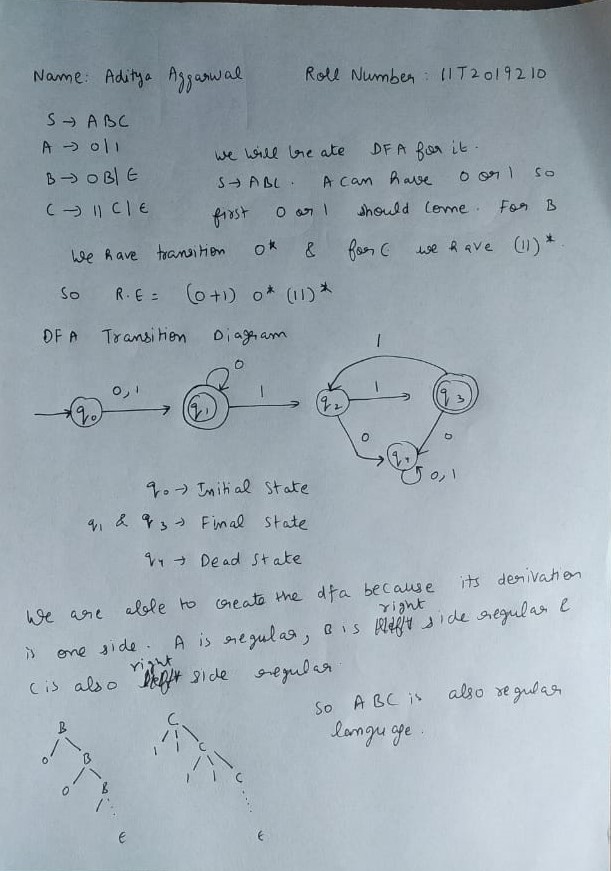 Name: Aditya Aggarwal Roll Number: IIT2019210
S → ABC
A → 0|1 We will create DFA for it.
B → 0B|E S → ABC. A can have 0 or 1 so
C → 11C|E first 0 or 1 should come. For B
We have transition 0* & for C we have (11)*.
So R.E = (0+1) 0* (11)*
DFA Transition Diagram
1
0,1 0 1 1
q0 q1 q2 q3
0 0
q4
0,1
q0 → Initial State
q1 & q3 → Final State
q4 → Dead State
We are able to create the dfa because its derivation
is one side. A is regular, B is right side regular &
C is also right side regular.
So ABC is also regular
language.
B C
0 B 1 1 C
0 B 1 1 C
E E